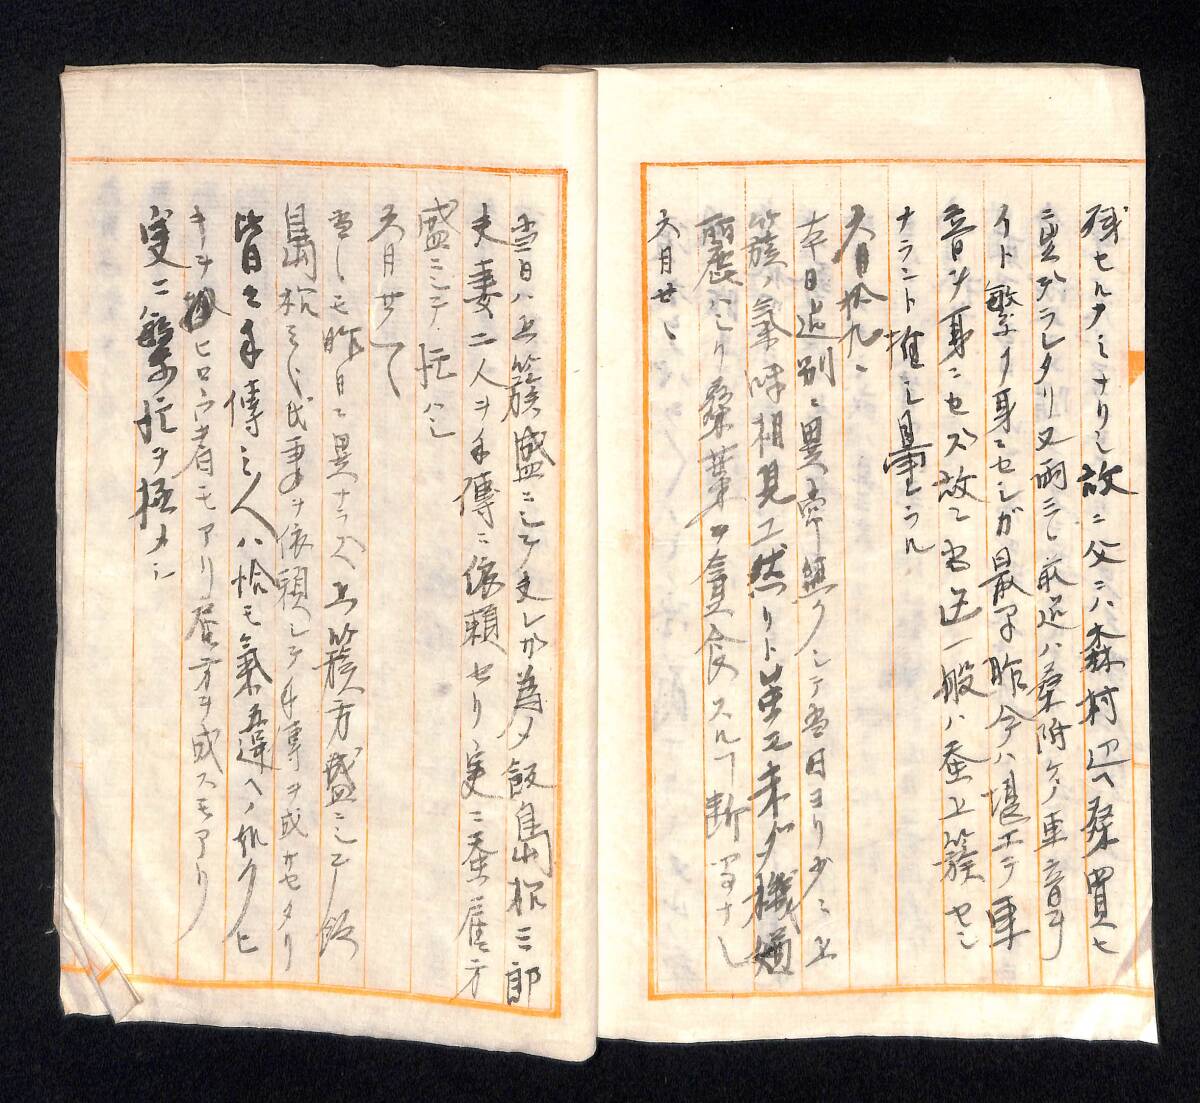 残セルナミナリシ故ニ父ニハ森村辺ヘ桑買セ
ニ立デラレタリ又雨ミシ前迄ハ桑附ケノ車音ヲ
イト繁ク耳ニセシガ最早昨今ハ堪エテ車
音ヲ耳ニセズ故ニ当辺一般ハ蚕上簇セシ
ナラント推シ量ラル
六月拾九日
本日迠別ニ異常無クシテ当日ヨリ少ニ上
簇ノ氣味相見エ然リト虽モ未ダ機嫌
麗ハシク桑葉ヲ食スルヿ断間ナシ
六月廿日
当日ハ上簇盛ニシテ之レガ為メ飯島松三郎
夫妻二人ヲ手傳ニ依頼セリ実ニ蚕雇方
盛ミシテ忙ハシ
六月廿一日
当日モ昨日ニ異ナラズ上簇方盛ニシテ飯
島松ミ氏妻ヲ依頼シテ手傳ヲ成サセタリ
皆々手傳ミ人ハ恰モ氣五違ヘノ如クヒ
キヲヒロウ者モアリ蚕方ヲ成スモアリ
実ニ繁忙ヲ極メシ